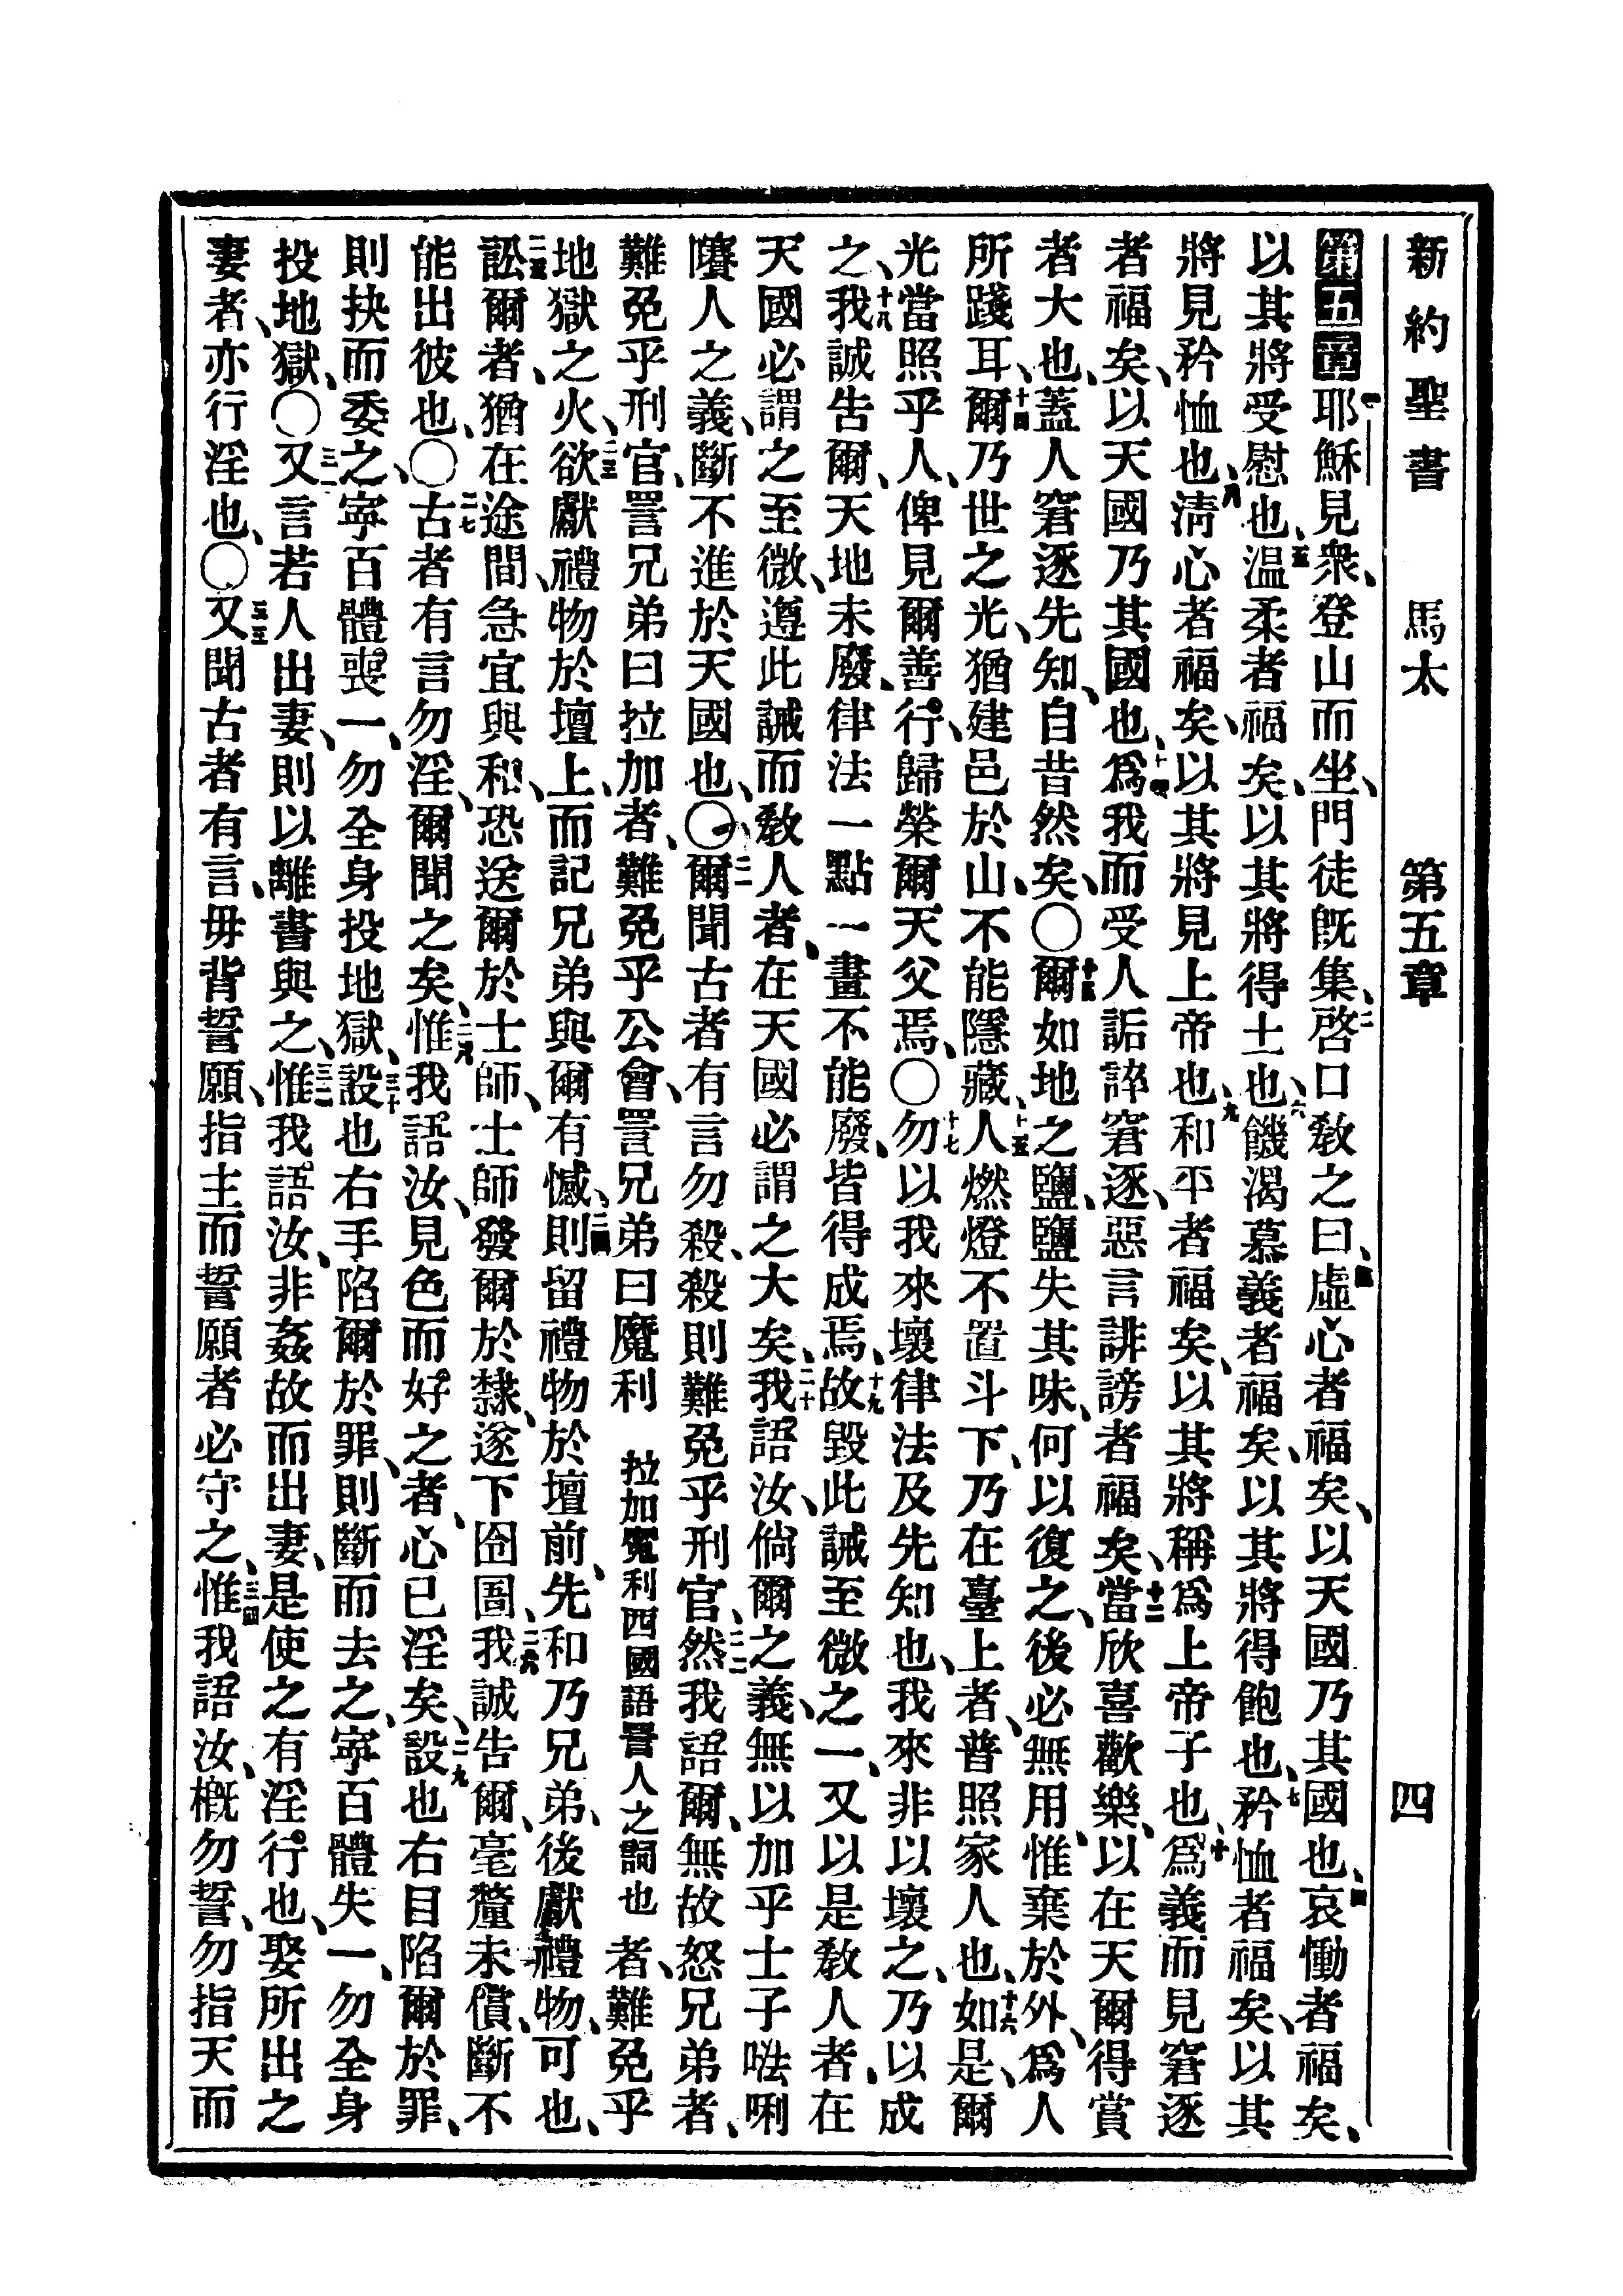 新約聖書 馬太 第五章 四
第五章一耶穌見衆、登山而坐、門徒旣集、二啓口敎之曰、三虛心者福矣、以天國乃其國也、四哀慟者福矣、
以其將受慰也、五温柔者福矣、以其將得土也、六饑渴慕義者福矣、以其將得飽也、七矜恤者福矣、以其
將見矜恤也、八淸心者福矣、以其將見上帝也、九和平者福矣、以其將稱爲上帝子也、十爲義而見窘逐
者福矣、以天國乃其國也、十一爲我而受人詬誶窘逐、惡言誹謗者福矣、十二當欣喜歡樂、以在天爾得賞
者大也、蓋人窘逐先知、自昔然矣、〇十三爾如地之鹽、鹽失其味、何以復之、後必無用、惟棄於外、爲人
所踐耳、十四爾乃世之光、猶建邑於山、不能隱藏、十五人燃燈不置斗下、乃在臺上者、普照家人也、十六如是、爾
光當照乎人、俾見爾善行、歸榮爾天父焉、〇十七勿以我來壞律法及先知也、我來非以壞之、乃以成
之、十八我誠告爾、天地未廢、律法一點一畫不能廢、皆得成焉、十九故毀此誡至微之一、又以是敎人者、在
天國必謂之至微、遵此誡而敎人者、在天國必謂之大矣、二十我語汝、倘爾之義、無以加乎士子㗠唎
㘔人之義、斷不進於天國也、〇二一爾聞古者有言勿殺、殺則難免乎刑官、二二然我語爾、無故怒兄弟者、
難免乎刑官、詈兄弟曰拉加者、難免乎公會、詈兄弟曰魔利 拉加魔利四國語詈人之詞也 者、難免乎
地獄之火、二三欲獻禮物於壇上、而記兄弟與爾有憾、二四則留禮物於壇前、先和乃兄弟、後獻禮物、可也、
二五訟爾者、猶在途間、急宜與和、恐送爾於士師、士師發爾於隸、遂下囹圄、二六我誠告爾、毫釐未償、斷不
能出彼也、〇二七古者有言勿淫、爾聞之矣、二八惟我語汝、見色而好之者、心已淫矣、二九設也右目陷爾於罪、
則抉而委之、寜百體喪一、勿全身投地獄、三十設也右手陷爾於罪、則斷而去之、寜百體失一、勿全身
投地獄、〇三一又言若人出妻、則以離書與之、三二惟我語汝、非姦故而出妻、是使之有淫行也、娶所出之
妻者、亦行淫也、〇三三又聞古者有言、毋背誓願、指主而誓願者必守之、三四惟我語汝、槪勿誓、勿指天而